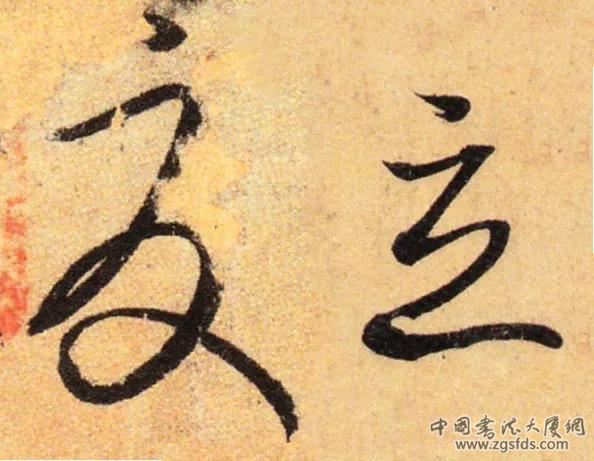 立
中國書法大厦網
www.zgsfds.com